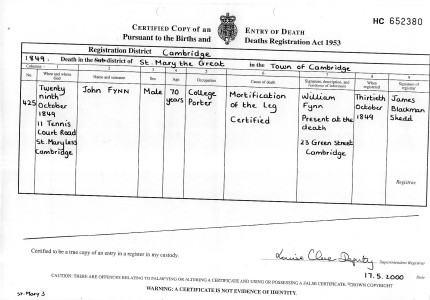 HC 652380
CERTIFIED COPY of an ENTRY OF DEATH
Pursuant to the Births and Deaths Registration Act 1953
Registration District Cambridge
1849. Death in the Sub-district of St. Mary the Great in the Town of Cambridge
Columns:- 1 2 3 4 5 6 7 8 9
No. When and where died Name and surname Sex Age Occupation Cause of death Signature, description, and residence of informant When registered Signature of registrar
425 Twenty ninth October 1849 11 Tennis Court Road St. Mary Less Cambridge
John FYNN
Male
70 years
College Porter
Mortification of the Leg Certified
William Fynn Present at the death 23 Green Street Cambridge
Thirtieth October 1849
James Blackman Shedd
Registrar
Certified to be a true copy of an entry in a register in my custody.
Deputy Superintendent Registrar
17.5.2000 Date
CAUTION: THERE ARE OFFENCES RELATING TO FALSIFYING OR ALTERING A CERTIFICATE AND USING OR POSSESSING A FALSE CERTIFICATE. ©CROWN COPYRIGHT
WARNING: A CERTIFICATE IS NOT EVIDENCE OF IDENTITY.
St. Mary 3